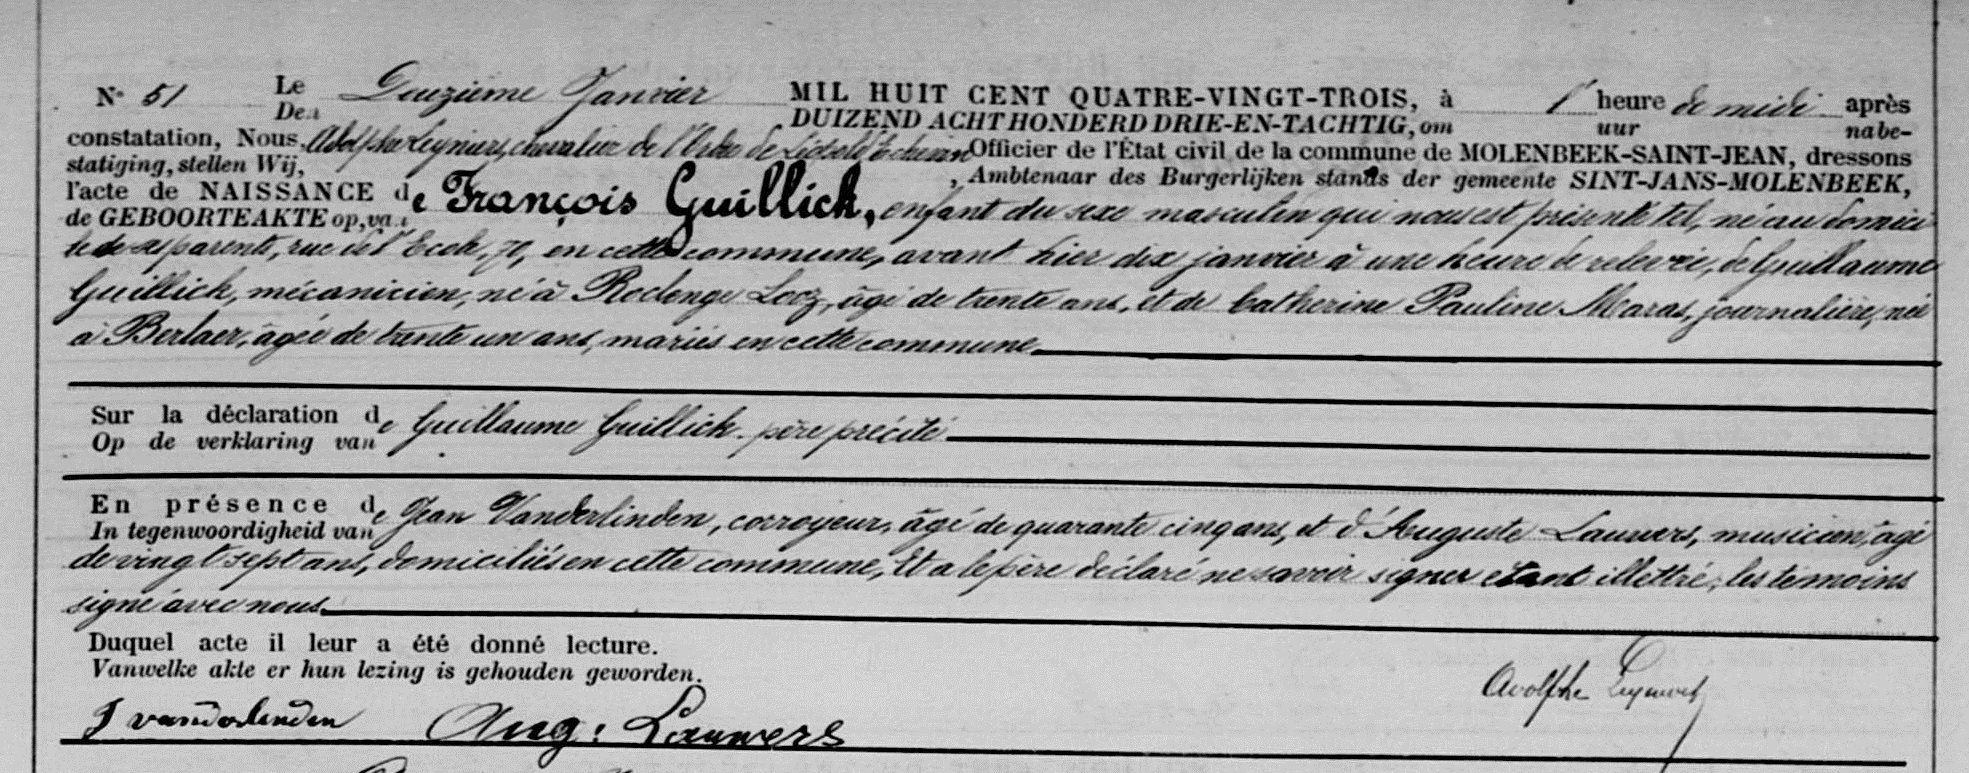 N° 51 Le Douzième Janvier MIL HUIT CENT QUATRE-VINGT-TROIS, à 1 heure de midi après
Den DUIZEND ACHT HONDERD DRIE-EN-TACHTIG, om uur nabe-
constatation, Nous, Adolphe Leynier, chevalier de l'Ordre de Léopold, Echevin Officier de l'État civil de la commune de MOLENBEEK-SAINT-JEAN, dressons
statiging, stellen Wij, , Ambtenaar des Burgerlijken stands der gemeente SINT-JANS-MOLENBEEK,
l'acte de NAISSANCE de François Guillick, enfant du sexe masculin qui nous est présenté tel, né au domici
de GEBOORTEAKTE op, van
le de ses parents, rue de l'Ecole, 70, en cette commune, avant hier dix janvier à une heure de relevée, de Guillaume
Guillick, mécanicien, né à Roclenge Looz, âgé de trente ans, et de Catherine Pauline Maras, journalière, née
à Berlaer, âgée de trente un ans, mariés en cette commune
Sur la déclaration de Guillaume Guillick père précité
Op de verklaring van
En présence de Jean Vanderlinden, corroyeur, âgé de quarante cinq ans, et d'Auguste Lauwers, musicien, âgé
In tegenwoordigheid van
de vingt sept ans, domiciliés en cette commune, Et a le père déclaré ne savoir signer étant illettré, les témoins
signé avec nous
Duquel acte il leur a été donné lecture.
Vanwelke akte er hun lezing is gehouden geworden.
J vanderlenden Aug: Lauwers Adolphe